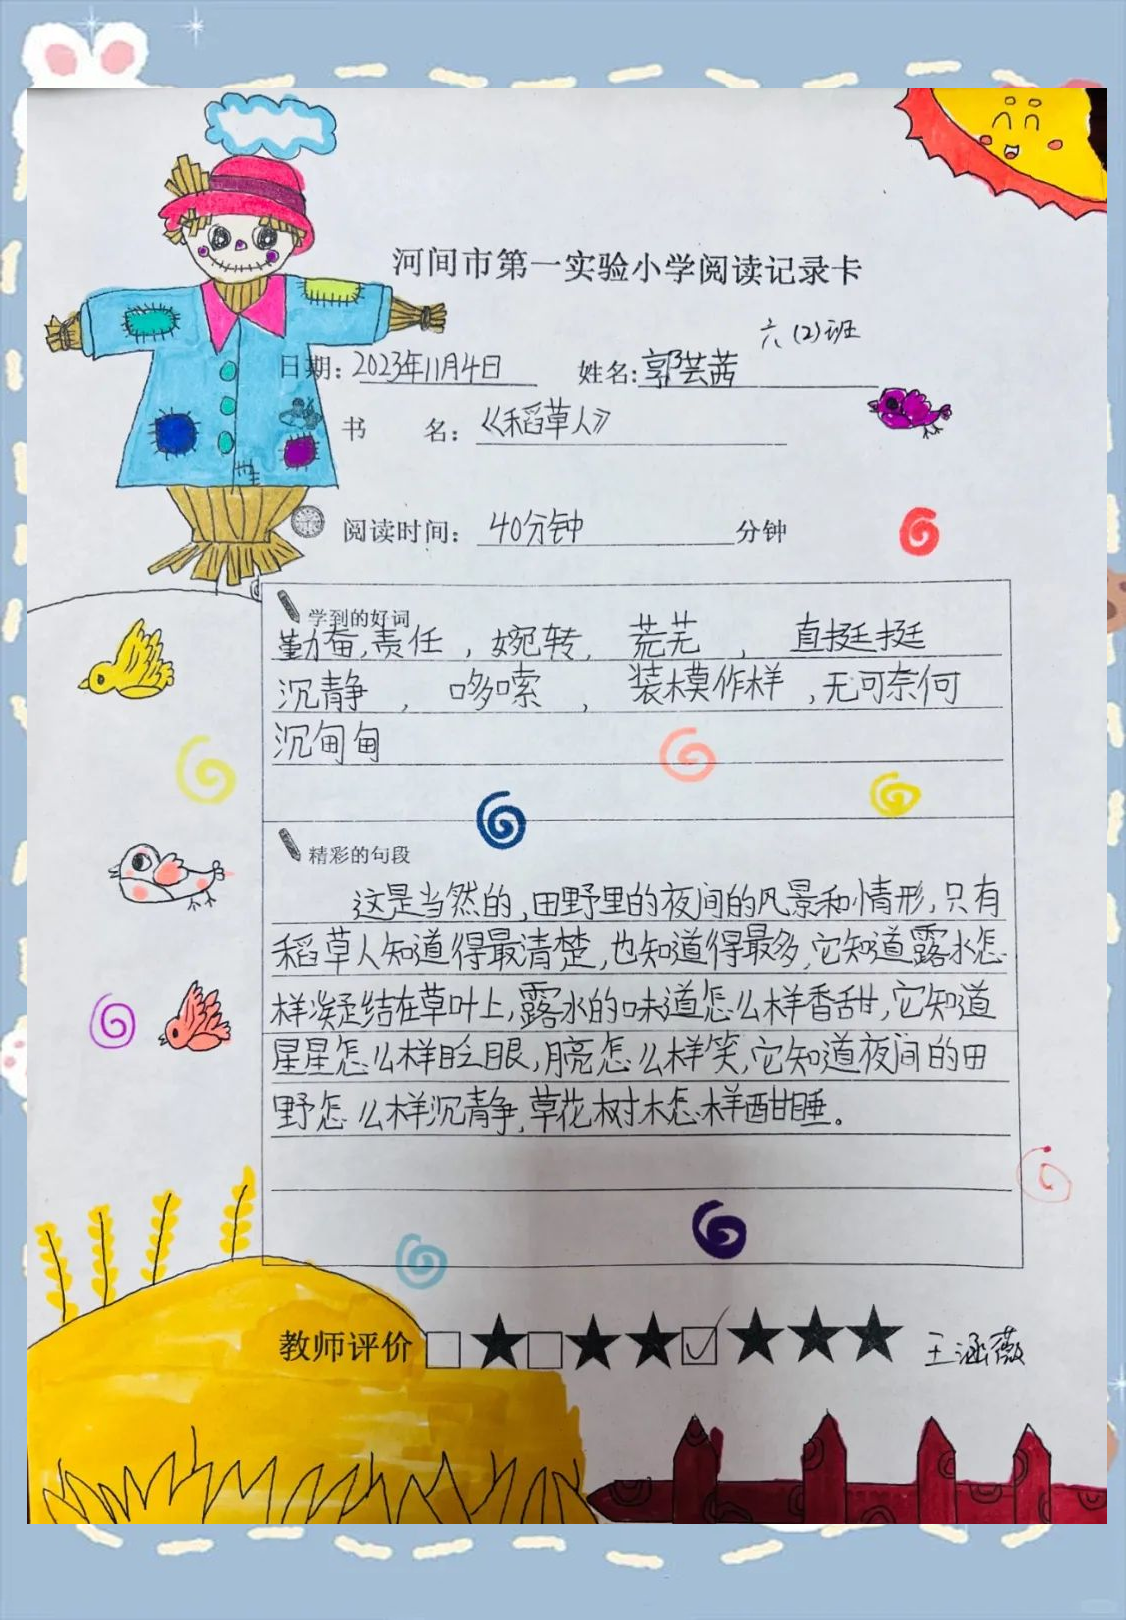 河间市第一实验小学阅读记录卡
六(2)班
日期：2023年11月4日 姓名:郭芸茜
书 名：《稻草人》
阅读时间：40分钟 分钟
学到的好词
勤奋,责任，婉转，荒芜，直挺挺
沉静，哆嗦，装模作样，无可奈何
沉甸甸
精彩的句段
这是当然的,田野里的夜间的风景和情形,只有
稻草人知道得最清楚,也知道得最多,它知道露水怎
样凝结在草叶上,露水的味道怎么样香甜,它知道
星星怎么样眨眼,月亮怎么样笑,它知道夜间的田
野怎么样沉静,草花树木怎样酣睡。
教师评价 □★□★★☑★★★ 王涵薇